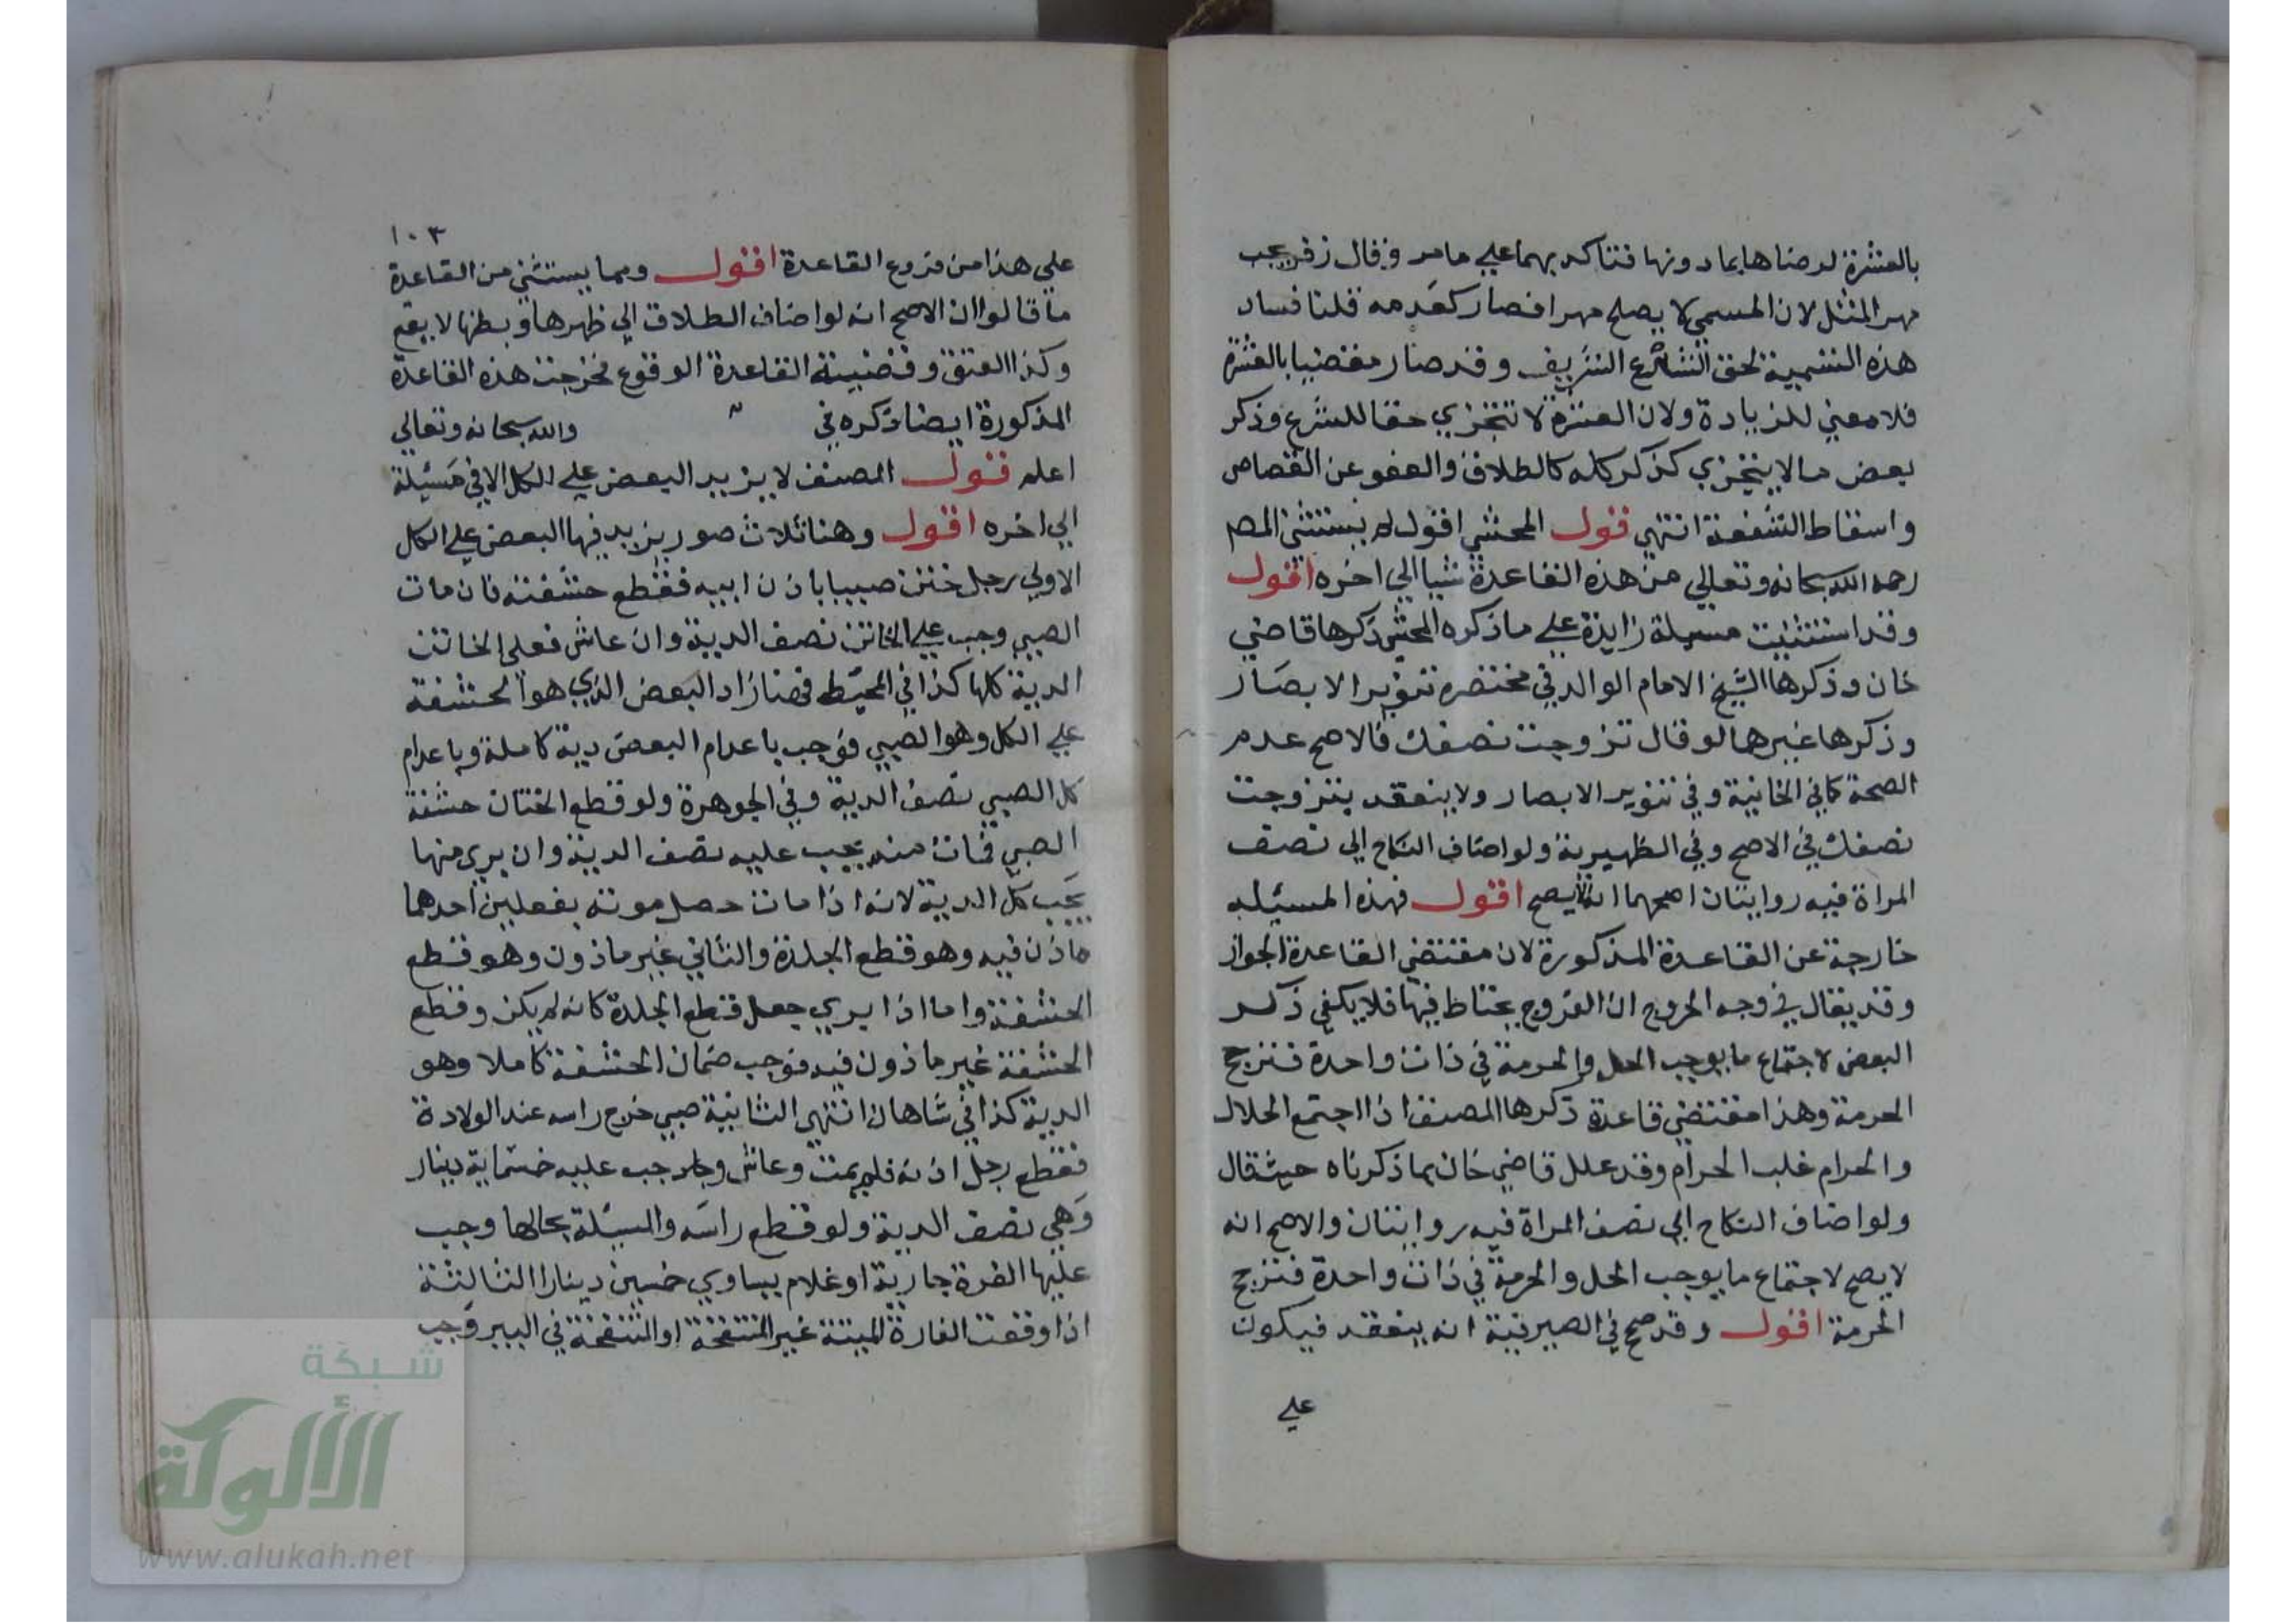 بالعشرة لرضاها بما دونها فتتاكد بهما علي ما مر وقال زفر يجب
مهر المثل لان المسمي لا يصلح مهرا فصار كعدمه قلنا فساد
هذه التسمية لحق الشرع الشريف وقد صار مقضيا بالعشرة
فلا معني للزيادة ولان العشرة لا تتجزي حقا للشرع وذكر
بعض ما لا يتجزي كذكر كله كالطلاق والعفو عن القصاص
واسقاط الشفعة انتهي قول المحشي اقول لم يستثن المص
رحمه الله سبحانه وتعالي من هذه القاعدة شيا الي اخره اقول
وقد استثنيت مسيلة زايدة علي ما ذكره المحشي ذكرها قاضي
خان وذكرها الشيخ الامام الوالد في مختصره تنوير الابصار
وذكرها غيرها لو قال تزوجت نصفك فالاصح عدم
الصحة كما في الخانية وفي تنوير الابصار ولا ينعقد بتزوجت
نصفك في الاصح وفي الظهيرية ولو اضاف النكاح الي نصف
المراة فيه روايتان اصحهما انه لا يصح اقول فهذه المسيله
خارجة عن القاعدة المذكورة لان مقتضي القاعدة الجواز
وقد يقال في وجه الخروج ان الفروج يحتاط فيها فلا يكفي ذكر
البعض لاجتماع ما يوجب الحل والحرمة في ذات واحدة فترجح
الحرمة وهذا مقتضي قاعدة ذكرها المصنف اذا اجتمع الحلال
والحرام غلب الحرام وقد علل قاضي خان بما ذكرناه حيث قال
ولو اضاف النكاح الي نصف المراة فيه روايتان والاصح انه
لا يصح لاجتماع ما يوجب الحل والحرمة في ذات واحدة فترجح
الحرمة اقول وقد صح في الصيرفية انه ينعقد فيكون
علي
١٠٣
علي هذا من فروع القاعدة اقول ومما يستثني من القاعدة
ما قالوا ان الاصح انه لو اضاف الطلاق الي ظهرها وبطنها لا يقع
وكذا العتق وقضية القاعدة الوقوع فخرجت هذه القاعدة
المذكورة ايضا ذكره في والله سبحانه وتعالي
اعلم قول المصنف لا يزيد البعض علي الكل الا في مسيلة
الي اخره اقول وهنا ثلاث صور يزيد فيها البعض علي الكل
الاولي رجل ختن صبيا باذن ابيه فقطع حشفته فان مات
الصبي وجب علي الخاتن نصف الدية وان عاش فعلي الخاتن
الدية كلها كذا في المحيط فهنا زاد البعض الذي هو الحشفة
علي الكل وهو الصبي فوجب باعدام البعض دية كاملة وباعدام
كل الصبي نصف الدية وفي الجوهرة ولو قطع الختان حشفة
الصبي فمات منه يجب عليه نصف الدية وان بري منها
يجب كل الدية لانه اذا مات حصل موته بفعلين احدهما
ماذن فيه وهو قطع الجلدة والثاني غير ماذون وهو قطع
الحشفة واما اذا بري جعل قطع الجلدة كانه لم يكن وقطع
الحشفة غير ماذون فيه فوجب ضمان الحشفة كاملا وهو
الدية كذا في شاهان انتهي الثانية صبي خرج راسه عند الولادة
فقطع رجل اذنه فلم يمت وعاش وجب عليه خسماية دينار
وهي نصف الدية ولو قطع راسه والمسيلة بحالها وجب
عليها الغرة جارية او غلام يساوي خمسين دينارا الثالثة
اذا وقعت الفارة الميتة غير المنتفخة او المنتفخة في البير وجب
شبكة
الألوكة
www.alukah.net